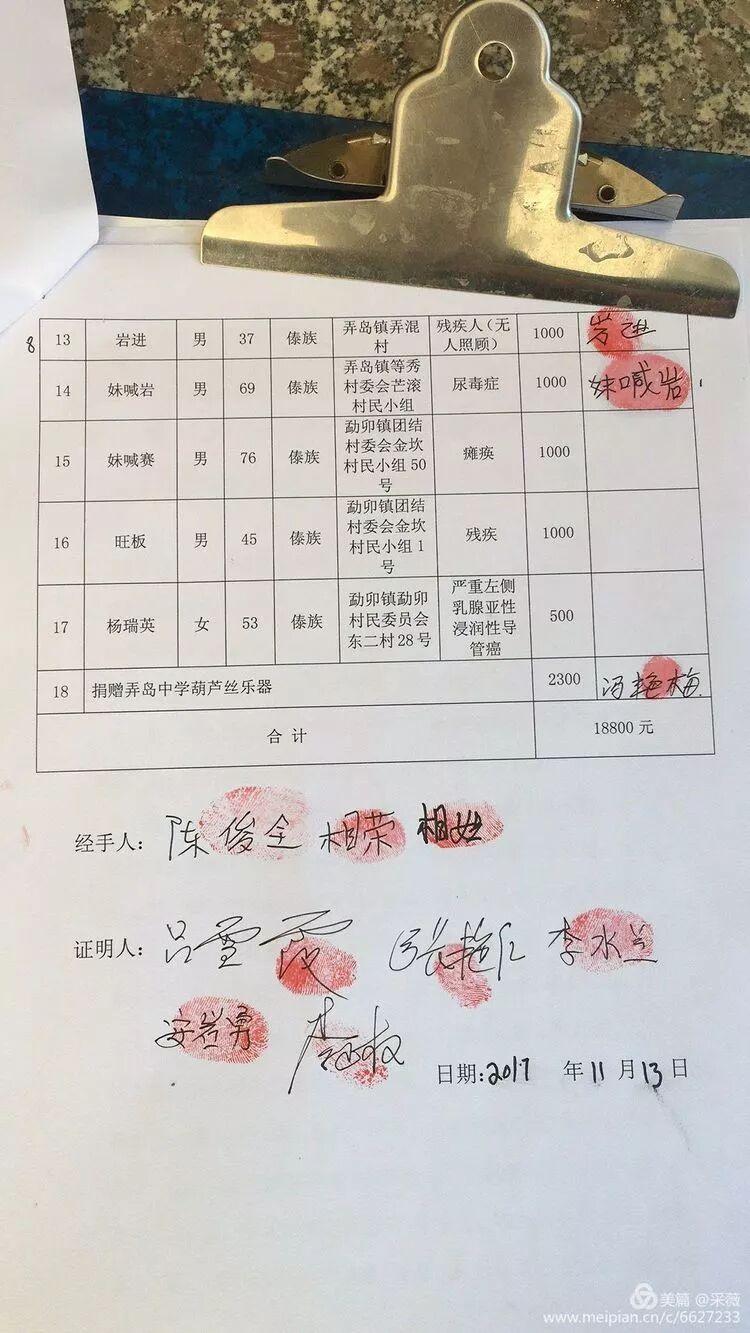 8
13 岩进 男 37 傣族 弄岛镇弄混村 残疾人(无人照顾) 1000 岩进
14 妹喊岩 男 69 傣族 弄岛镇等秀村委会芒滚村民小组 尿毒症 1000 妹喊岩
15 妹喊赛 男 76 傣族 勐卯镇团结村委会金坎村民小组50号 瘫痪 1000
16 旺板 男 45 傣族 勐卯镇团结村委会金坎村民小组1号 残疾 1000
17 杨瑞英 女 53 傣族 勐卯镇勐卯村民委员会东二村28号 严重左侧乳腺亚性浸润性导管癌 500
18 捐赠弄岛中学葫芦丝乐器 2300 冯艳梅
合计 18800元
经手人: 陈俊全 相荣 相姓
证明人: 吕雪霞 张艳仁 李水兰
安岩勇
日期:2017 年11月13日
美篇 @采薇
www.meipian.cn/c/6627233